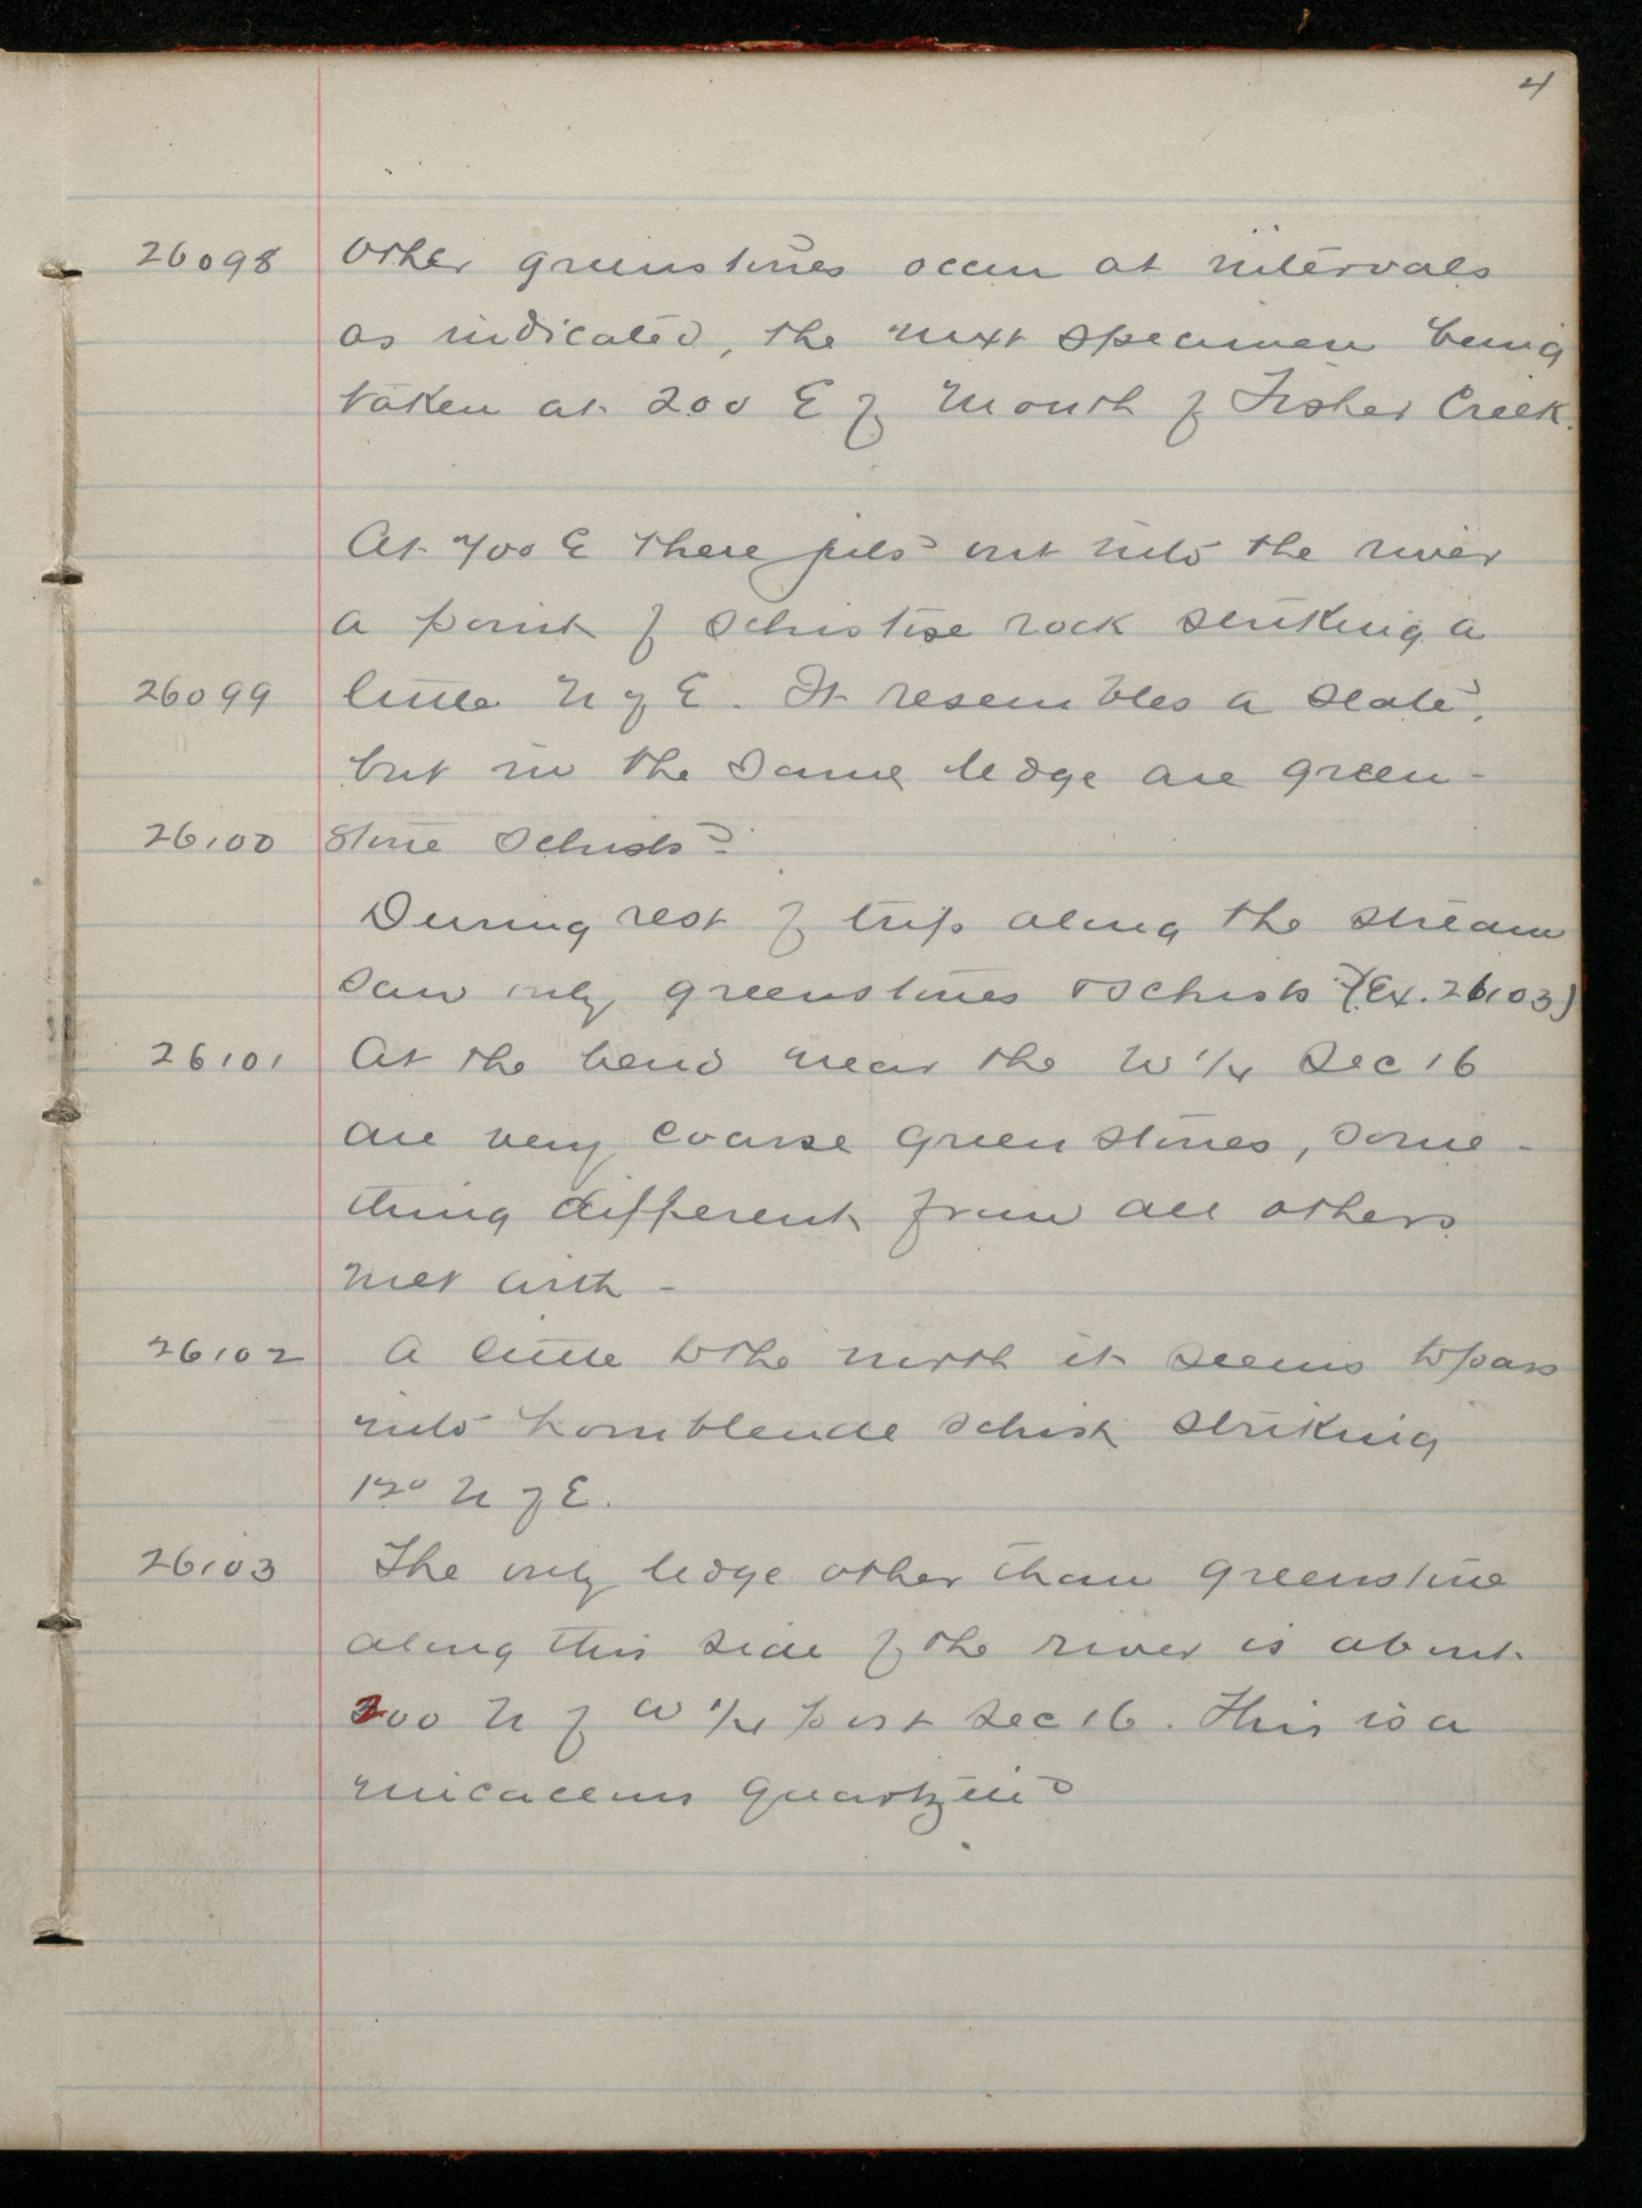 4
26098 Other greenstones occur at intervals
as indicated, the next specimen being
taken at 200 E of Mouth of Fisher Creek.
At 700 E there juts out into the river
a point of schistose rock striking a
26099 little N of E. It resembles a slate,
but in the same ledge are green-
26100 stone schists.
During rest of trip along the stream
saw only greenstones & schists (Ex. 26103)
26101 At the bend near the W 1/4 Sec 16
are very coarse green stones, some-
thing different from all others
met with -
26102 A little to the north it seems to pass
into hornblende schist striking
N of E.
26103 The only ledge other than greenstone
along this side of the river is about
N of W 1/4 post Sec 16. This is a
micaceous quartzite